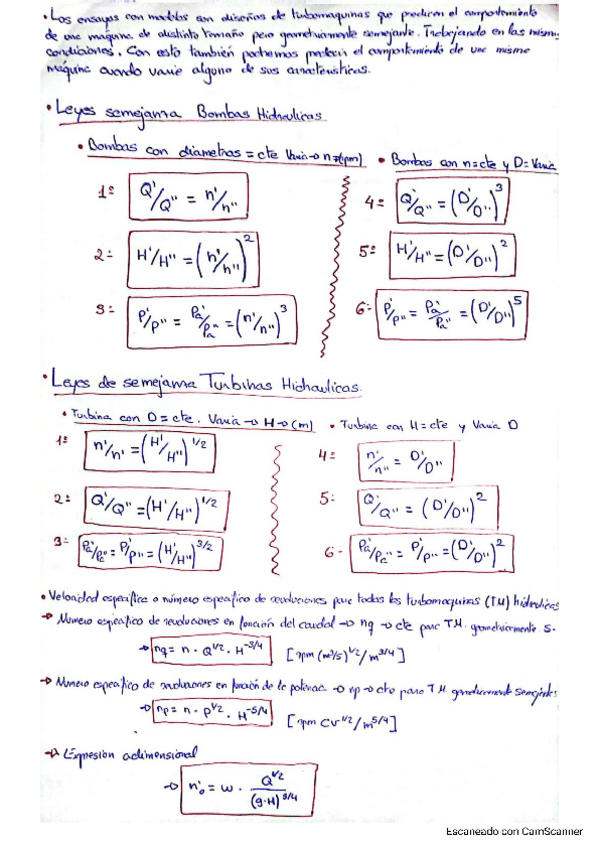 • Los ensayos con modelos son diseños de turbomaquinas que predicen el comportamiento
de una máquina de distinto tamaño pero geometricamente semejante. Trabajando en las mismas
condiciones. Con esto también podremos predecir el comportamiento de una misma
máquina cuando varie alguna de sus caracteristicas.
• Leyes semejanza Bombas Hidraulicas
• Bombas con diametros = cte Varia → n=(rpm)
• Bombas con n=cte y D= Varia
1º Q'/Q'' = n'/n''
4= Q'/Q'' = (D'/D'')^3
2= H'/H'' = (n'/n'')^2
5= H'/H'' = (D'/D'')^2
3= P'/P'' = Pa'/Pa'' = (n'/n'')^3
6- P'/P'' = Pa'/Pa'' = (D'/D'')^5
• Leyes de semejanza Turbinas Hidraulicas
• Turbina con D = cte. Varia → H → (m)
• Turbina con H = cte y Varia D
1º n'/n' = (H'/H'')^1/2
4= n'/n'' = D'/D''
2= Q'/Q'' = (H'/H'')^1/2
5= Q'/Q'' = (D'/D'')^2
3= Pa'/Pa'' = P'/P'' = (H'/H'')^3/2
6- Pa'/Pa'' = P'/P'' = (D'/D'')^2
• Velocidad especifica o número especifico de revoluciones para todas las turbomaquinas (T.M) hidraulicas
→ Numero especifico de revoluciones en función del caudal → nq → cte para T.M. geometricamente s.
→ nq = n · Q^1/2 · H^-3/4 [rpm (m³/s)^1/2 / m^3/4]
→ Numero especifico de revoluciones en función de la potencia → np → cte para T.M. geometricamente semejantes
→ np = n · P^1/2 · H^-5/4 [rpm CV^1/2 / m^5/4]
→ Expresion adimensional
→ n'o = w · Q^1/2 / (g·H)^3/4
Escaneado con CamScanner